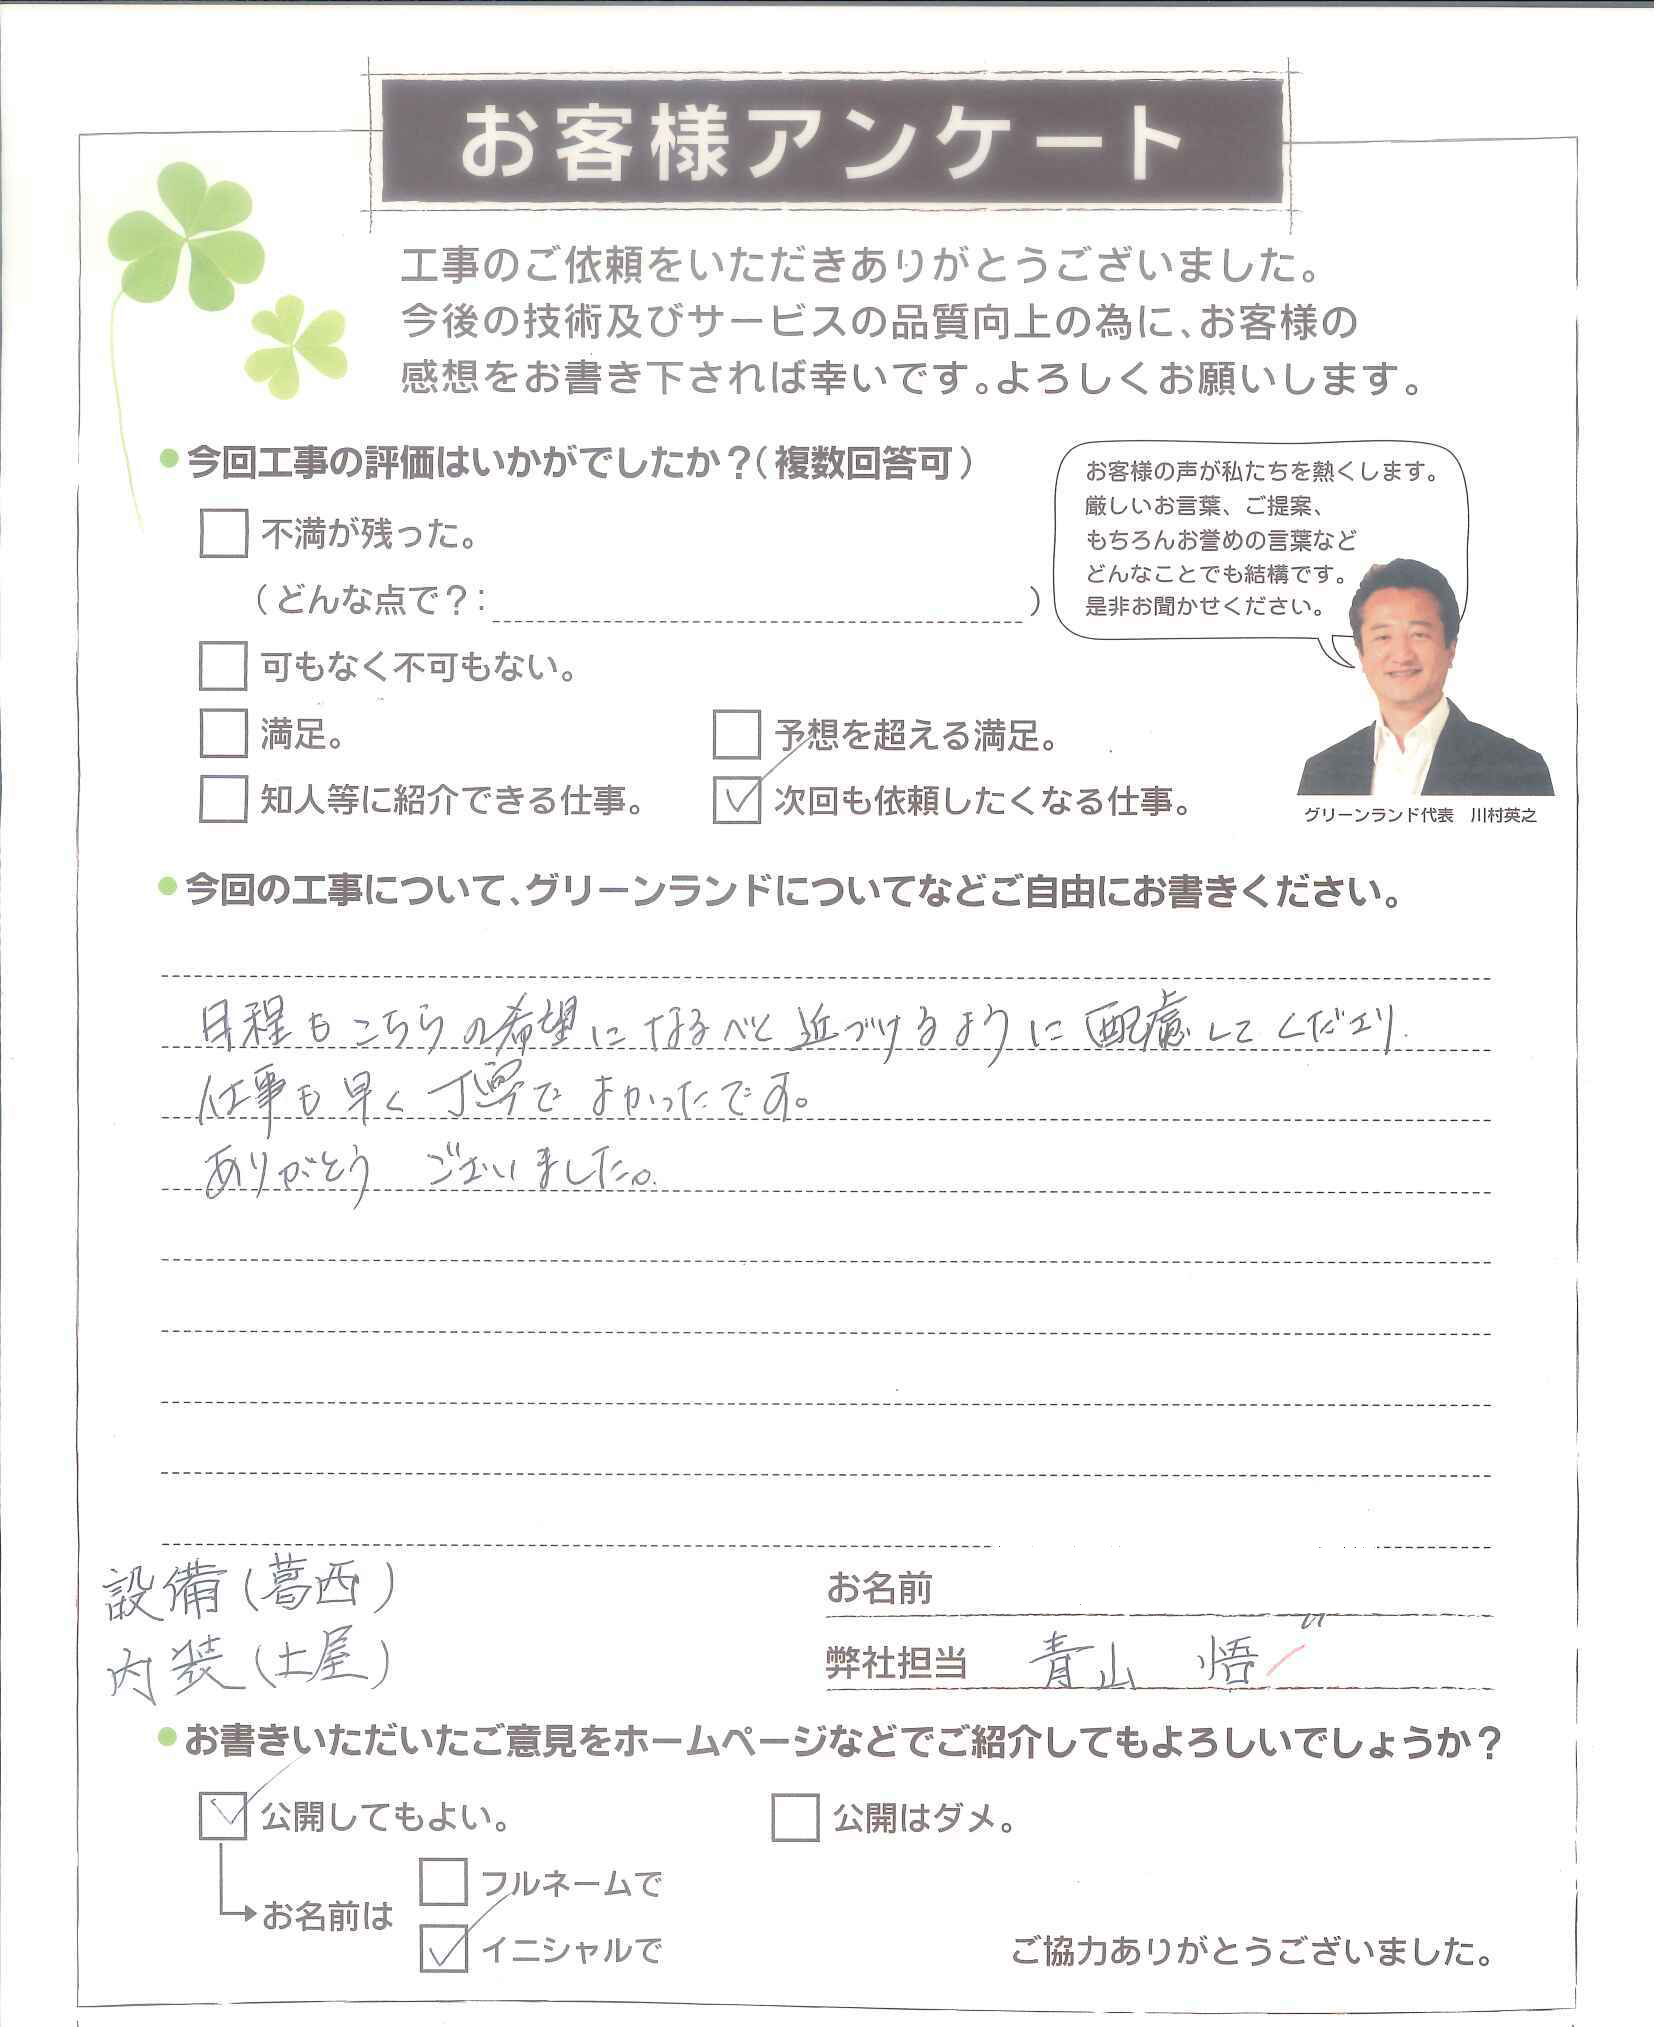 お客様アンケート
工事のご依頼をいただきありがとうございました。
今後の技術及びサービスの品質向上の為に、お客様の
感想をお書き下されば幸いです。よろしくお願いします。
今回工事の評価はいかがでしたか？（複数回答可）
不満が残った。
（どんな点で？： ）
可もなく不可もない。
満足。
予想を超える満足。
知人等に紹介できる仕事。
次回も依頼したくなる仕事。
お客様の声が私たちを熱くします。
厳しいお言葉、ご提案、
もちろんお誉めの言葉など
どんなことでも結構です。
是非お聞かせください。
グリーンランド代表　川村英之
今回の工事について、グリーンランドについてなどご自由にお書きください。
日程もこちらの希望になるべく近づけるように配慮してくださり
仕事も早く丁寧でよかったです。
ありがとう ございました。
設備(葛西)
内装(土屋)
お名前
弊社担当 青山 悟
お書きいただいたご意見をホームページなどでご紹介してもよろしいでしょうか？
公開してもよい。
公開はダメ。
お名前は
フルネームで
イニシャルで
ご協力ありがとうございました。